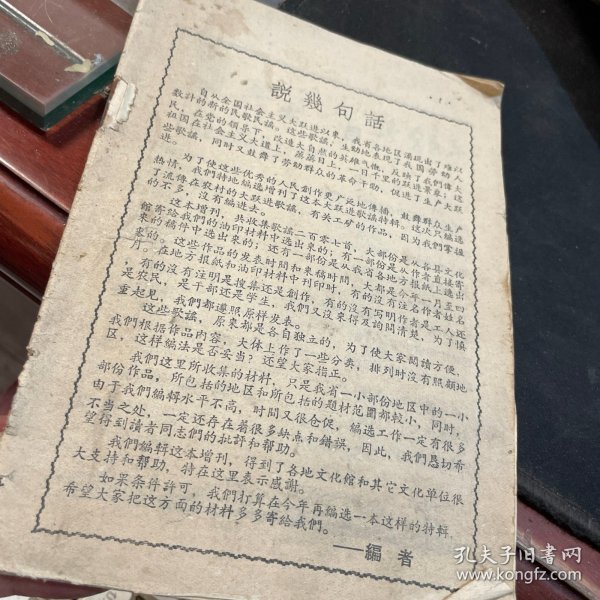 · 1 ·
說幾句話
自从全国社会主义大跃进以来，我省各地区涌现出了难以
数計的新的民歌民謠。这些歌謠，生动地表现了我国劳动人
民，在党的领导下，改造大自然的英雄气慨，反映了我們偉大
祖国在社会主义大道上，蒸蒸日上，一日千里的跃进景象；这
些歌謠，同时又鼓舞了劳动群众的革命干劲，促进了生产大跃
进。
为了使这些优秀的人民創作更广泛地傳播，鼓舞群众生产
热情，我們特地編选增刊了这本大跃进歌謠特輯。这次只編选
了流傳在农村的大跃进歌謠，有关工矿的作品，因为我們掌握
不多，沒有編选进去。
这本增刊，共收集歌謠二百零七首，大部份是从各县文化
館寄給我們的油印材料中选出来的；有一部份是从作者直接寄
来的稿件中选出来的；还有一部份是从我省各地方报紙上选出
来的。这些作品的发表时間和来稿时間，大都是今年一月至四
月。在地方报紙和油印材料中刊印时，有的沒有注名作者姓名
，有的沒有注明是搜集还是創作，有的沒有写明作者是工人还
是农民，是干部还是学生，我們又沒来得及詢問清楚，为了慎
重起見，我們都遵照原样发表。
这些歌謠，原来都是各自独立的，为了使大家閱讀方便，
我們根据作品内容，大体上作了一些分类，排列时沒有照顧地
区，这样編法是否妥当？还望大家指正。
我們这里所收集的材料，只是我省一小部份地区中的一小
部份作品，所包括的地区和所包括的題材范圍都較小，同时，
由于我們編輯水平不高，时間又很仓促，編选工作一定有很多
不当之处，一定还存在着很多缺点和錯誤，因此，我們恳切希
望得到讀者同志們的批評和帮助。
我們編輯这本增刊，得到了各地文化館和其它文化单位很
大支持和帮助，特在这里表示感謝。
如果条件許可，我們打算在今年再編选一本这样的特輯，
希望大家把这方面的材料多多寄給我們。
——編者
孔夫子旧書网
www.kongfz.com